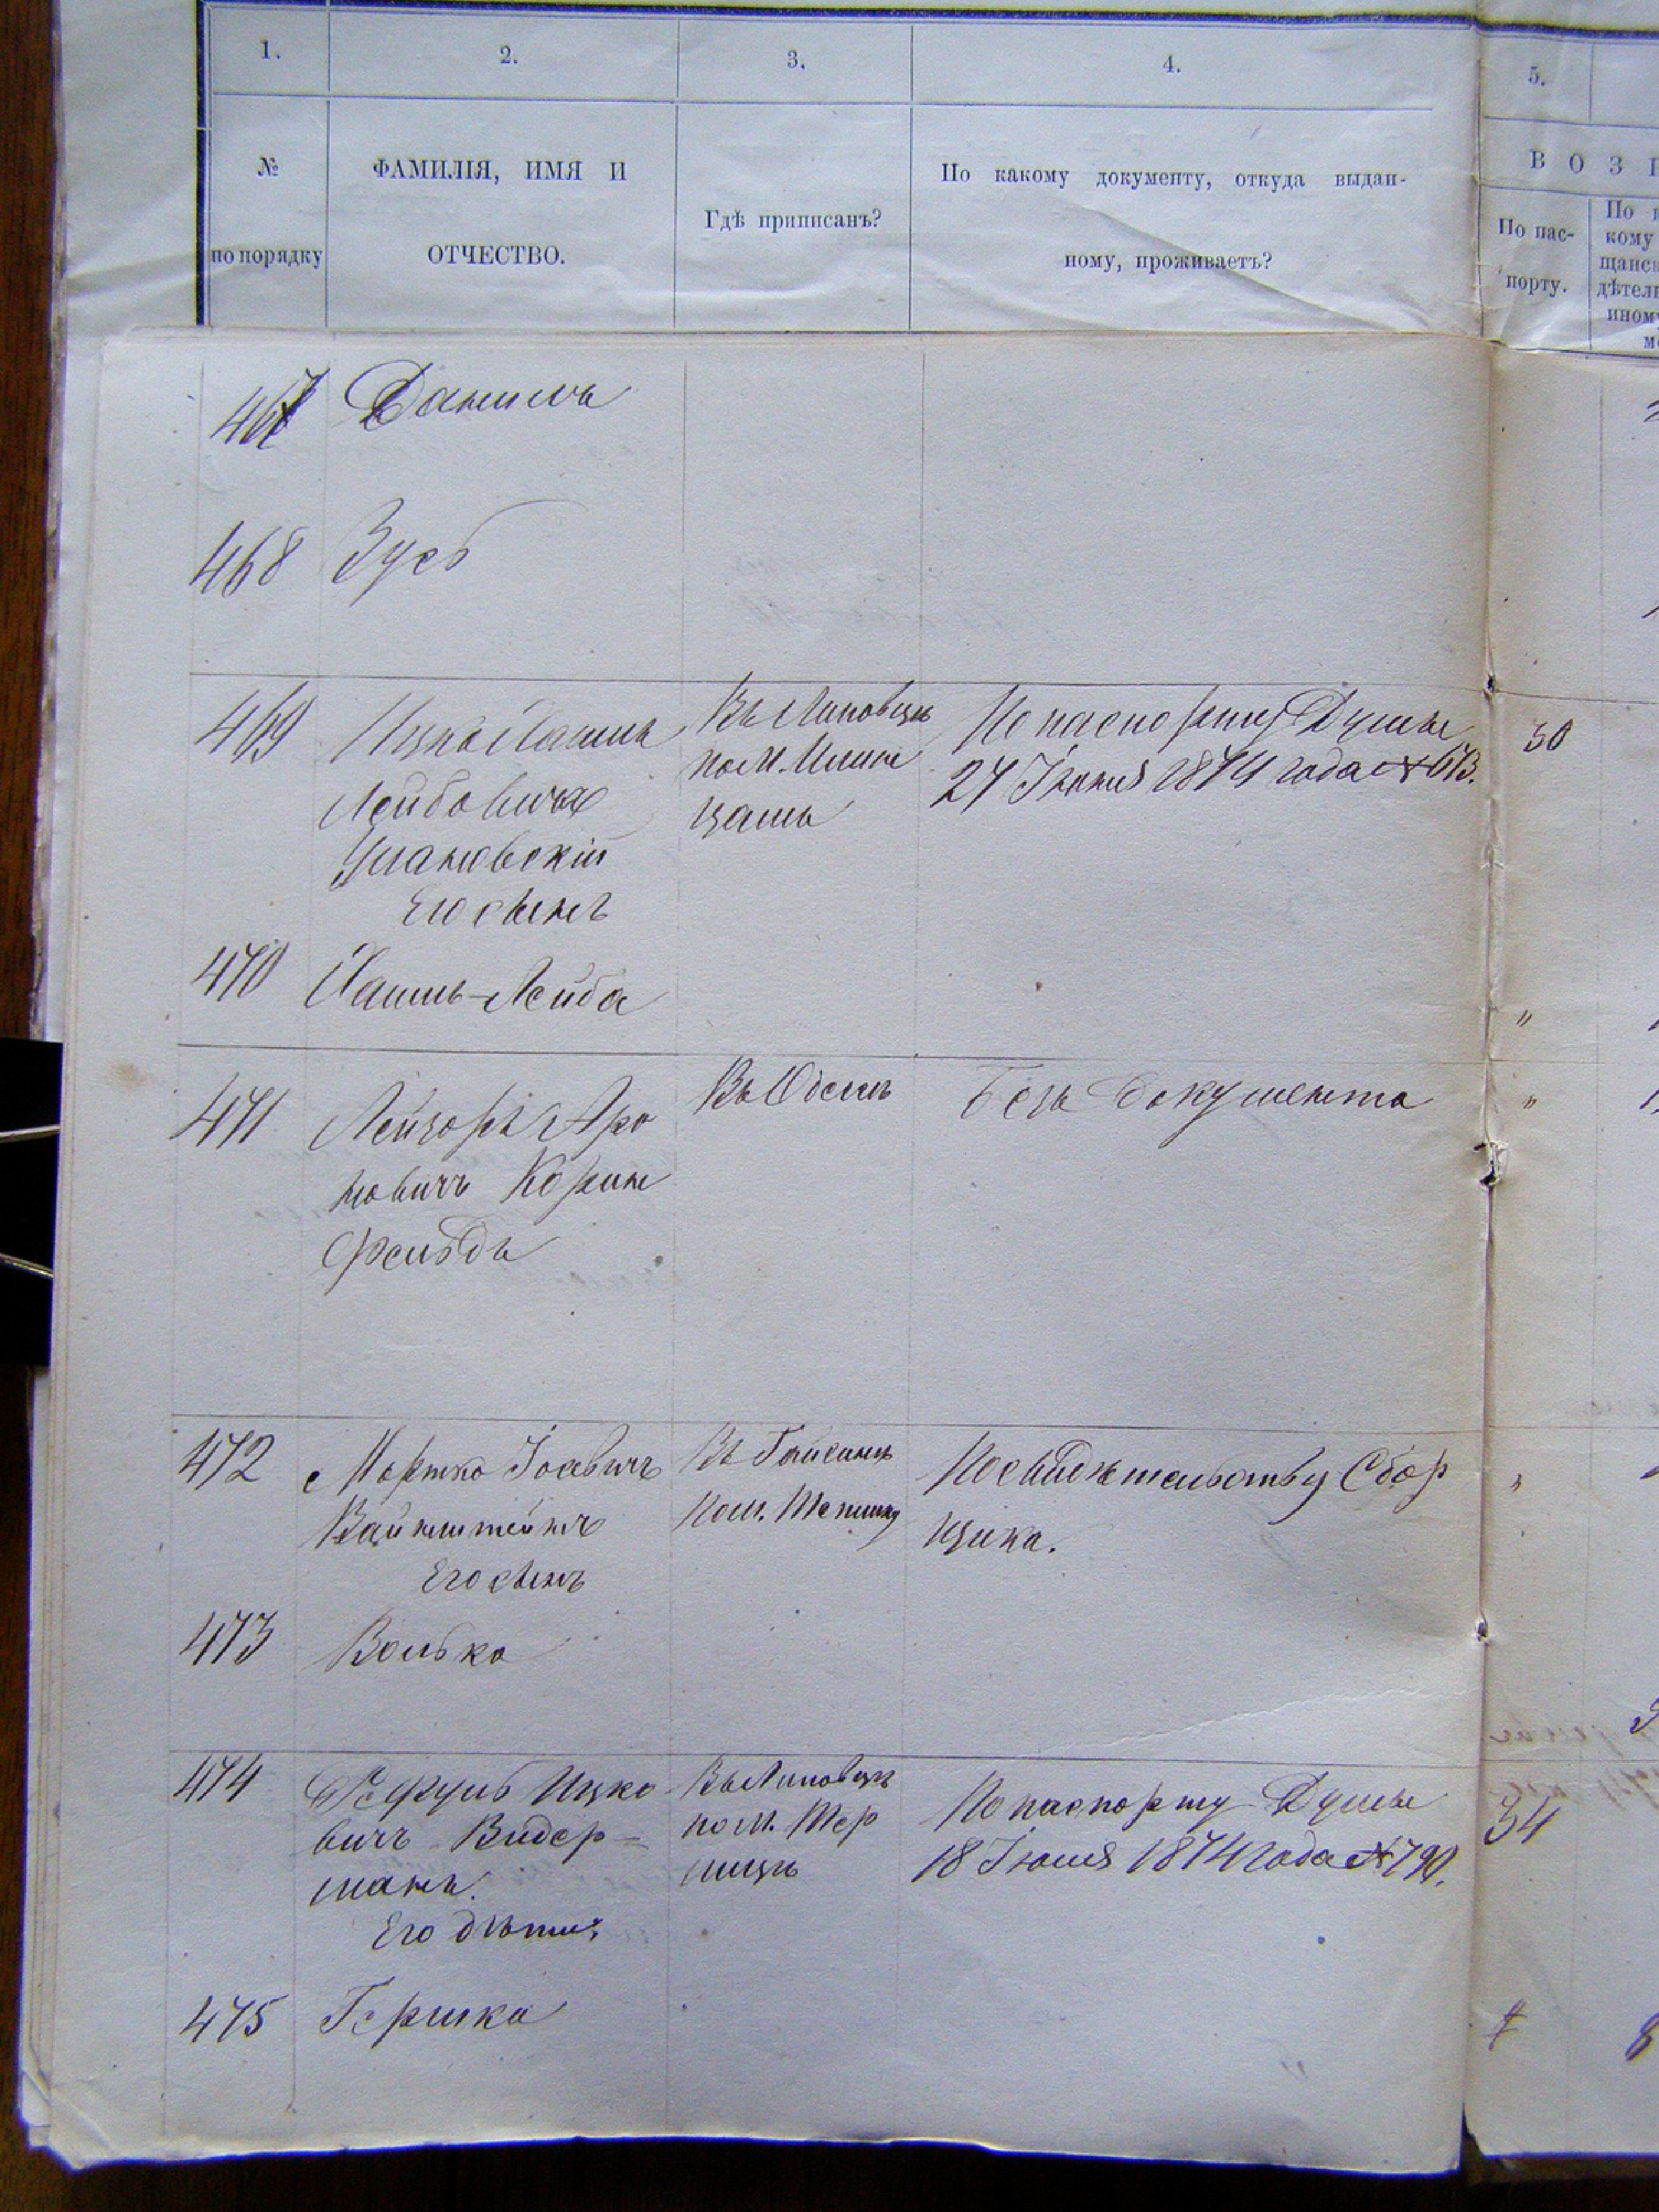 1. 2. 3. 4. 5.
№ по порядку
ФАМИЛІЯ, ИМЯ И
ОТЧЕСТВО.
Гдѣ приписанъ?
По какому документу, откуда выдан-
ному, проживаетъ?
ВОЗР
По пас-
порту.
467 Данилъ
468 Зусь
469
Лейбовичъ
Улановскій
Его сынъ
Въ Липовцѣ
по м. Илин
цамъ
По паспорту Думы
27 Іюня 1874 года №673.
30
470 Хаимъ-Лейба
"
471 Лейзоръ Аро
новичъ Корен
фельдъ
Въ Одессѣ
Безъ документа
"
472 Мортко Іоавичъ
Вайнштейнъ
Его сынъ
Въ Гайсинѣ
По м. Теплику
По свидѣтельству Сбор
щика.
"
473 Волько
474 Рефуль Ицко
вичъ Видер-
манъ.
Его дѣти:
Въ Липовцѣ
по м. Тер
лицѣ
По паспорту Думы
18 Іюля 1874 года №790.
34
475 Гершко